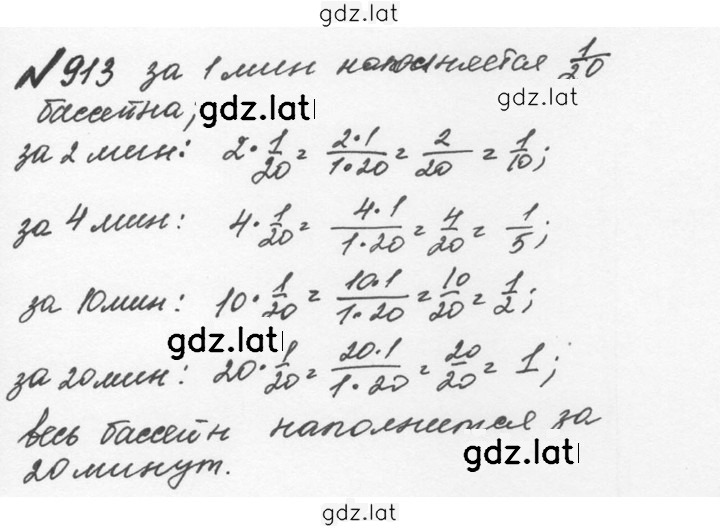 gdz.lat
№913 за 1 мин наполняется 1/20
gdz.lat
бассейна, gdz.lat
за 2 мин: 2·1/20 = 2·1/1·20 = 2/20 = 1/10;
за 4 мин: 4·1/20 = 4·1/1·20 = 4/20 = 1/5;
за 10 мин: 10·1/20 = 10·1/1·20 = 10/20 = 1/2;
gdz.lat
за 20 мин: 20·1/20 = 20·1/1·20 = 20/20 = 1;
весь бассейн наполнится за
20 минут. gdz.lat
gdz.lat